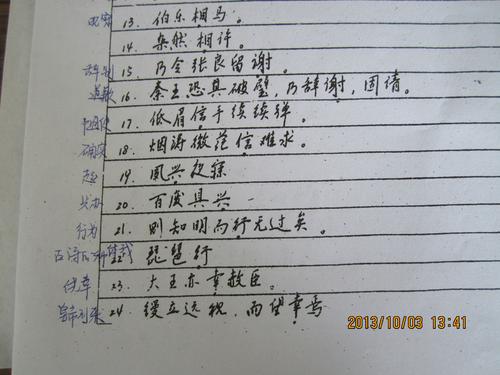 观察 13. 伯乐相马。
14. 杂然相许。
辞别 15. 乃令张良留谢。
道歉 16. 秦王恐其破璧，乃辞谢，固请。
17. 低眉信手续续弹。
确实 18. 烟涛微茫信难求。
起 19. 夙兴夜寐
兴办 20. 百废具兴
行为 21. 则知明而行无过矣。
古诗的一种体裁 22. 琵琶行
23. 大王亦幸赦臣。
24. 缦立远视，而望幸焉
2013/10/03 13:41